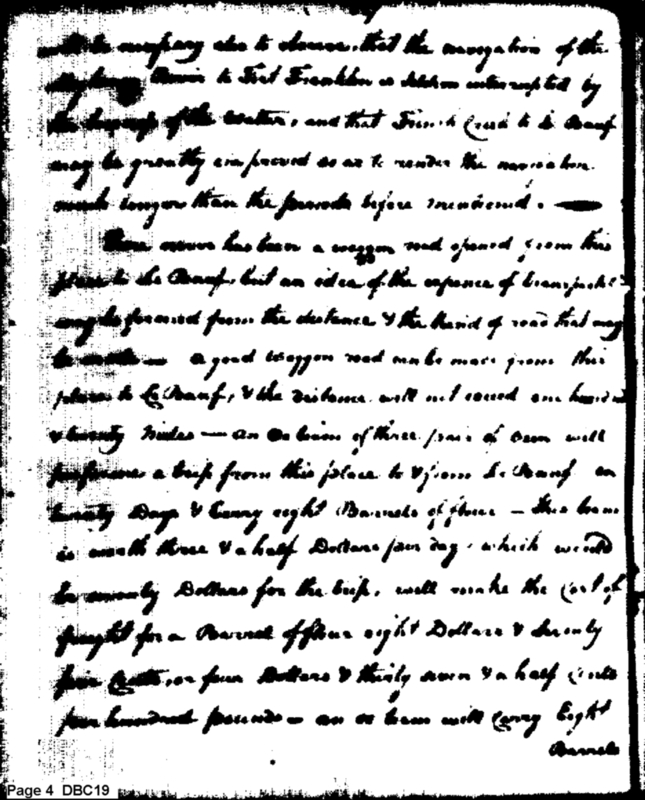 will be necessary also to observe, that the navigation of the
Allegheny River to Fort Franklin is seldom interrupted by
the lowness of the water, and that French Creek to Le Bauf
may be greatly improved so as to render the navigation
much longer than the periods before mentioned. —
There never has been a waggon road opened from this
place to Le Bauf, but an idea of the expence of transport
may be formed from the distance & the kind of road that may
be made — a good waggon road can be made from this
place to Le Bauf, & the distance will not exceed one hundred
& twenty Miles — an Ox team of three pair of Oxen will
perform a trip from this place to & from Le Bauf in
twenty Days & Carry eight Barrels of flour — this team
is worth three & a half Dollars per day, which would
be seventy Dollars for the trip, will make the Cost of
freight for a Barrel of flour eight Dollars & Seventy
five Cents, or four Dollars & thirty seven & a half Cents
per hundred pounds — an ox team will Carry Eight
Barrels
Page 4 DBC19